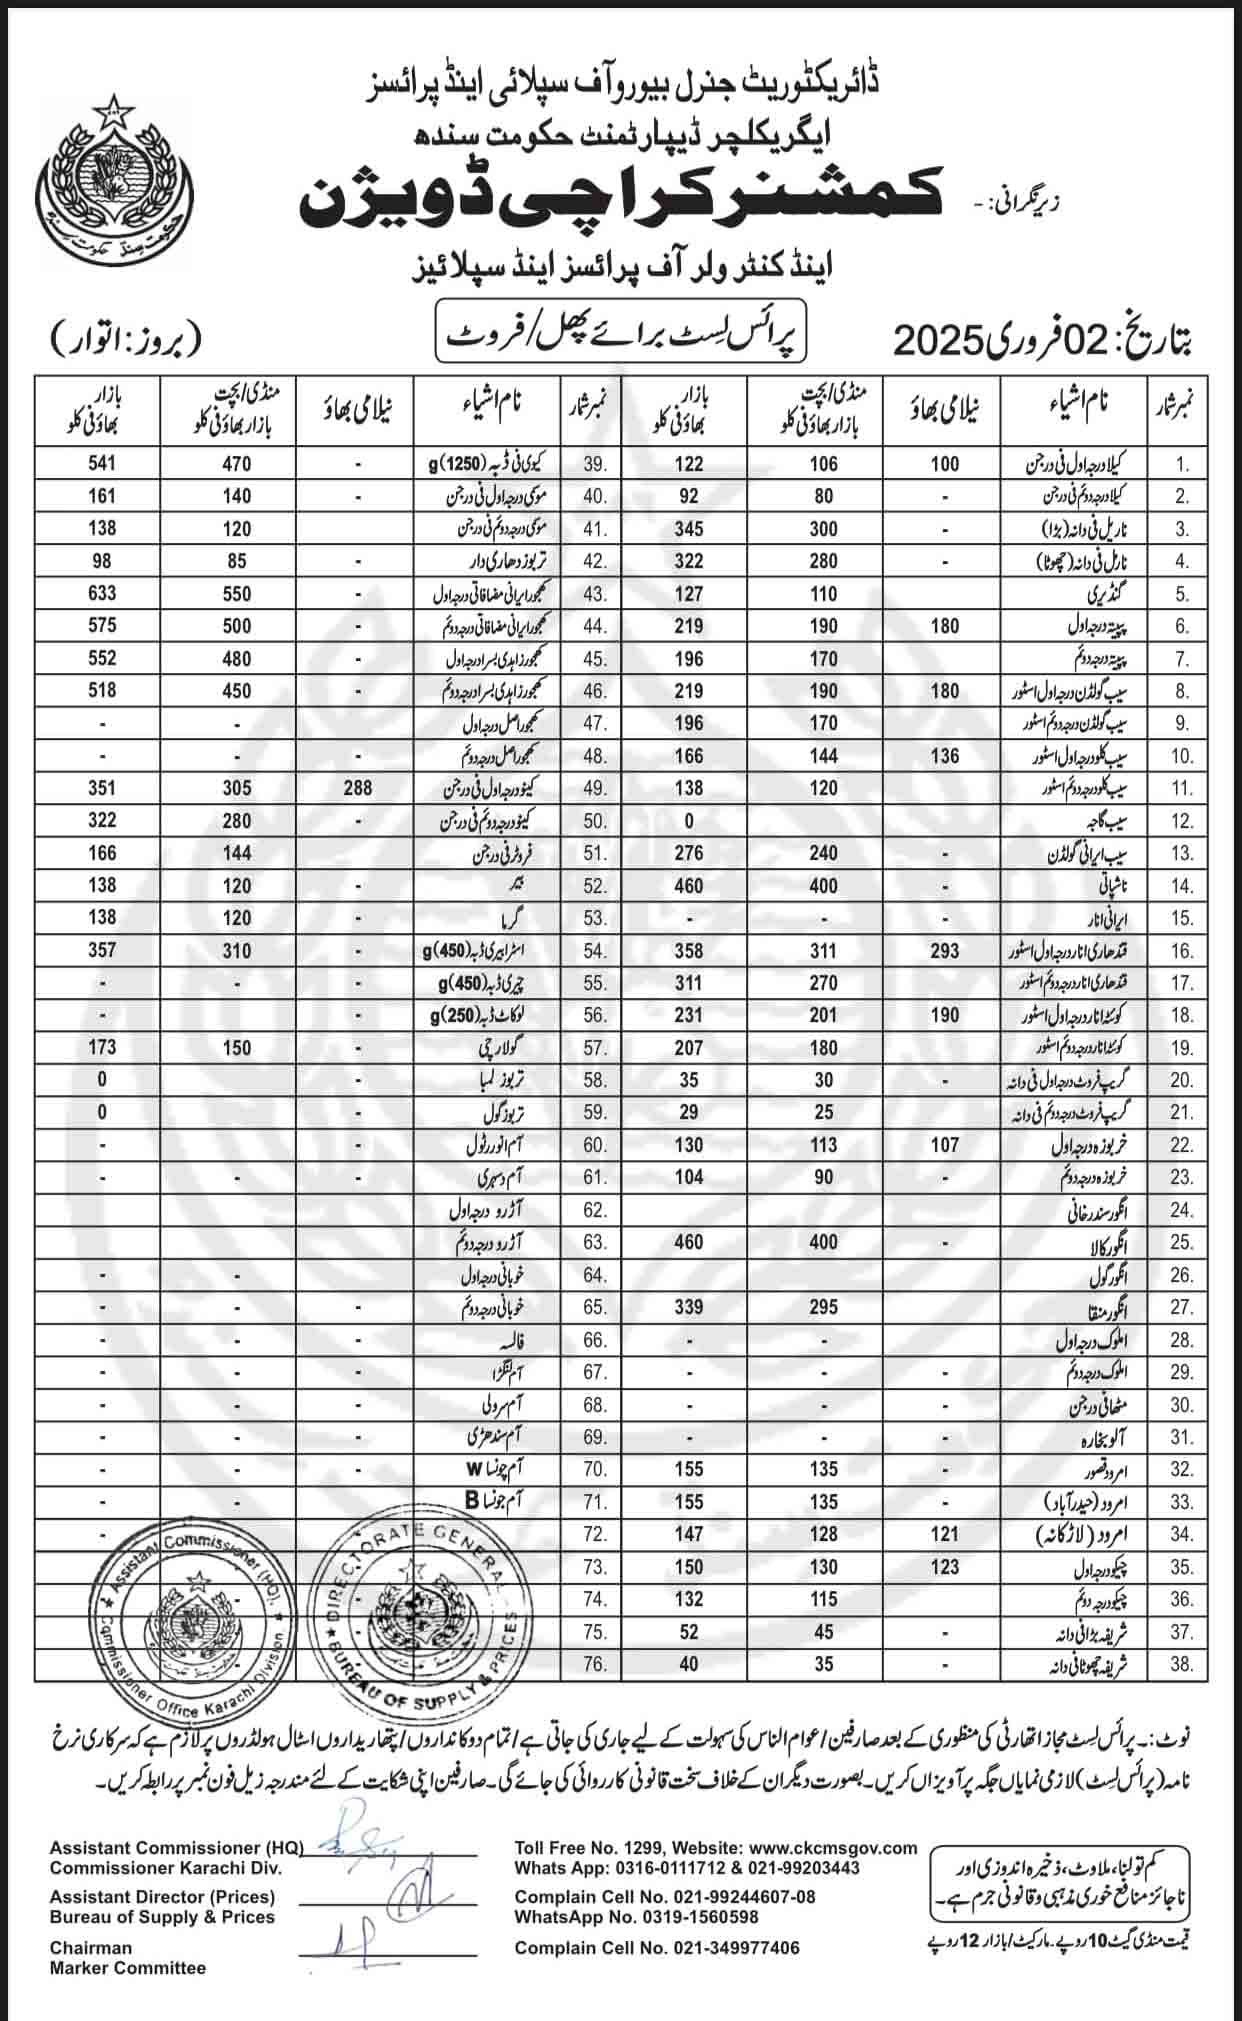 ڈائریکٹوریٹ جنرل بیورو آف سپلائی اینڈ پرائسز
ایگریکلچر ڈیپارٹمنٹ حکومت سندھ
زیر نگرانی: - کمشنر کراچی ڈویژن
اینڈ کنٹرولر آف پرائسز اینڈ سپلائیز
بتاریخ: 02 فروری 2025 پرائس لسٹ برائے پھل/فروٹ (بروز: اتوار)
نمبر شمار نام اشیاء نیلامی بھاؤ منڈی/بچت بازار بھاؤ فی کلو بازار بھاؤ فی کلو نمبر شمار نام اشیاء نیلامی بھاؤ منڈی/بچت بازار بھاؤ فی کلو بازار بھاؤ فی کلو
1. کیلا درجہ اول فی درجن 100 106 122 39. کیوی فی ڈبہ g(1250) - 470 541
2. کیلا درجہ دوئم فی درجن - 80 92 40. موسمی درجہ اول فی درجن - 140 161
3. ناریل فی دانہ (بڑا) - 300 345 41. موسمی درجہ دوئم فی درجن - 120 138
4. ناریل فی دانہ (چھوٹا) - 280 322 42. تربوز دھاری دار - 85 98
5. گنڈیری 110 127 43. کھجور ایرانی مضافاتی درجہ اول - 550 633
6. پپیتہ درجہ اول 180 190 219 44. کھجور ایرانی مضافاتی درجہ دوئم - 500 575
7. پپیتہ درجہ دوئم 170 196 45. کھجور زاہدی بسرا درجہ اول - 480 552
8. سیب گولڈن درجہ اول اسٹور 180 190 219 46. کھجور زاہدی بسرا درجہ دوئم - 450 518
9. سیب گولڈن درجہ دوئم اسٹور 170 196 47. کھجور اصل درجہ اول - - -
10. سیب کلو درجہ اول اسٹور 136 144 166 48. کھجور اصل درجہ دوئم - - -
11. سیب کلو درجہ دوئم اسٹور 120 138 49. کینو درجہ اول فی درجن 288 305 351
12. سیب گاجہ 0 50. کینو درجہ دوئم فی درجن - 280 322
13. سیب ایرانی گولڈن - 240 276 51. فروٹر فی درجن - 144 166
14. ناشپاتی - 400 460 52. بیر - 120 138
15. ایرانی انار - - - 53. گرما - 120 138
16. قندھاری انار درجہ اول اسٹور 293 311 358 54. اسٹرابیری ڈبہ g(450) - 310 357
17. قندھاری انار درجہ دوئم اسٹور 270 311 55. چیری ڈبہ g(450) - - -
18. کوئٹہ انار درجہ اول اسٹور 190 201 231 56. لوکاٹ ڈبہ g(250) - - -
19. کوئٹہ انار درجہ دوئم اسٹور 180 207 57. گولارچی - 150 173
20. گریپ فروٹ درجہ اول فی دانہ - 30 35 58. تربوز لمبا - 0
21. گریپ فروٹ درجہ دوئم فی دانہ - 25 29 59. تربوز گول - 0
22. خربوزہ درجہ اول 107 113 130 60. آم انور رٹول - - -
23. خربوزہ درجہ دوئم - 90 104 61. آم دسہری - - -
24. انگور سندرخانی 62. آڑرو درجہ اول
25. انگور کالا - 400 460 63. آڑرو درجہ دوئم
26. انگور گول 64. خوبانی درجہ اول - - -
27. انگور منقا 295 339 65. خوبانی درجہ دوئم - - -
28. املوک درجہ اول - - 66. فالسہ - - -
29. املوک درجہ دوئم - - - 67. آم لنگڑا - - -
30. مٹھا فی درجن - - - 68. آم سرولی - - -
31. آلو بخارہ - - - 69. آم سندھڑی - - -
32. امرود قصور 135 155 70. آم چونسا W - - -
33. امرود (حیدرآباد) - 135 155 71. آم چونسا B - - -
34. امرود (لاڑکانہ) 121 128 147 72. -
35. چیکو درجہ اول 123 130 150 73.
36. چیکو درجہ دوئم 115 132 74.
37. شریفہ بڑا فی دانہ - 45 52 75.
38. شریفہ چھوٹا فی دانہ - 35 40 76.
Assistant Commissioner (HQ),
Commissioner Office Karachi Division
DIRECTORATE GENERAL
BUREAU OF SUPPLY & PRICES
نوٹ:۔ پرائس لسٹ مجاز اتھارٹی کی منظوری کے بعد صارفین/عوام الناس کی سہولت کے لیے جاری کی جاتی ہے/تمام دوکانداروں/پتھاریداروں اسٹال ہولڈروں پر لازم ہے کہ سرکاری نرخ
نامہ (پرائس لسٹ) لازمی نمایاں جگہ پر آویزاں کریں۔ بصورت دیگر ان کے خلاف سخت قانونی کارروائی کی جائے گی۔ صارفین اپنی شکایت کے لئے مندرجہ زیل فون نمبر پر رابطہ کریں۔
Assistant Commissioner (HQ)
Commissioner Karachi Div.
Assistant Director (Prices)
Bureau of Supply & Prices
Chairman
Marker Committee
Toll Free No. 1299, Website: www.ckcmsgov.com
Whats App: 0316-0111712 & 021-99203443
Complain Cell No. 021-99244607-08
WhatsApp No. 0319-1560598
Complain Cell No. 021-349977406
کم تولنا، ملاوٹ، ذخیرہ اندوزی اور
ناجائز منافع خوری مذہبی و قانونی جرم ہے۔
قیمت منڈی گیٹ 10 روپے۔ مارکیٹ/بازار 12 روپے